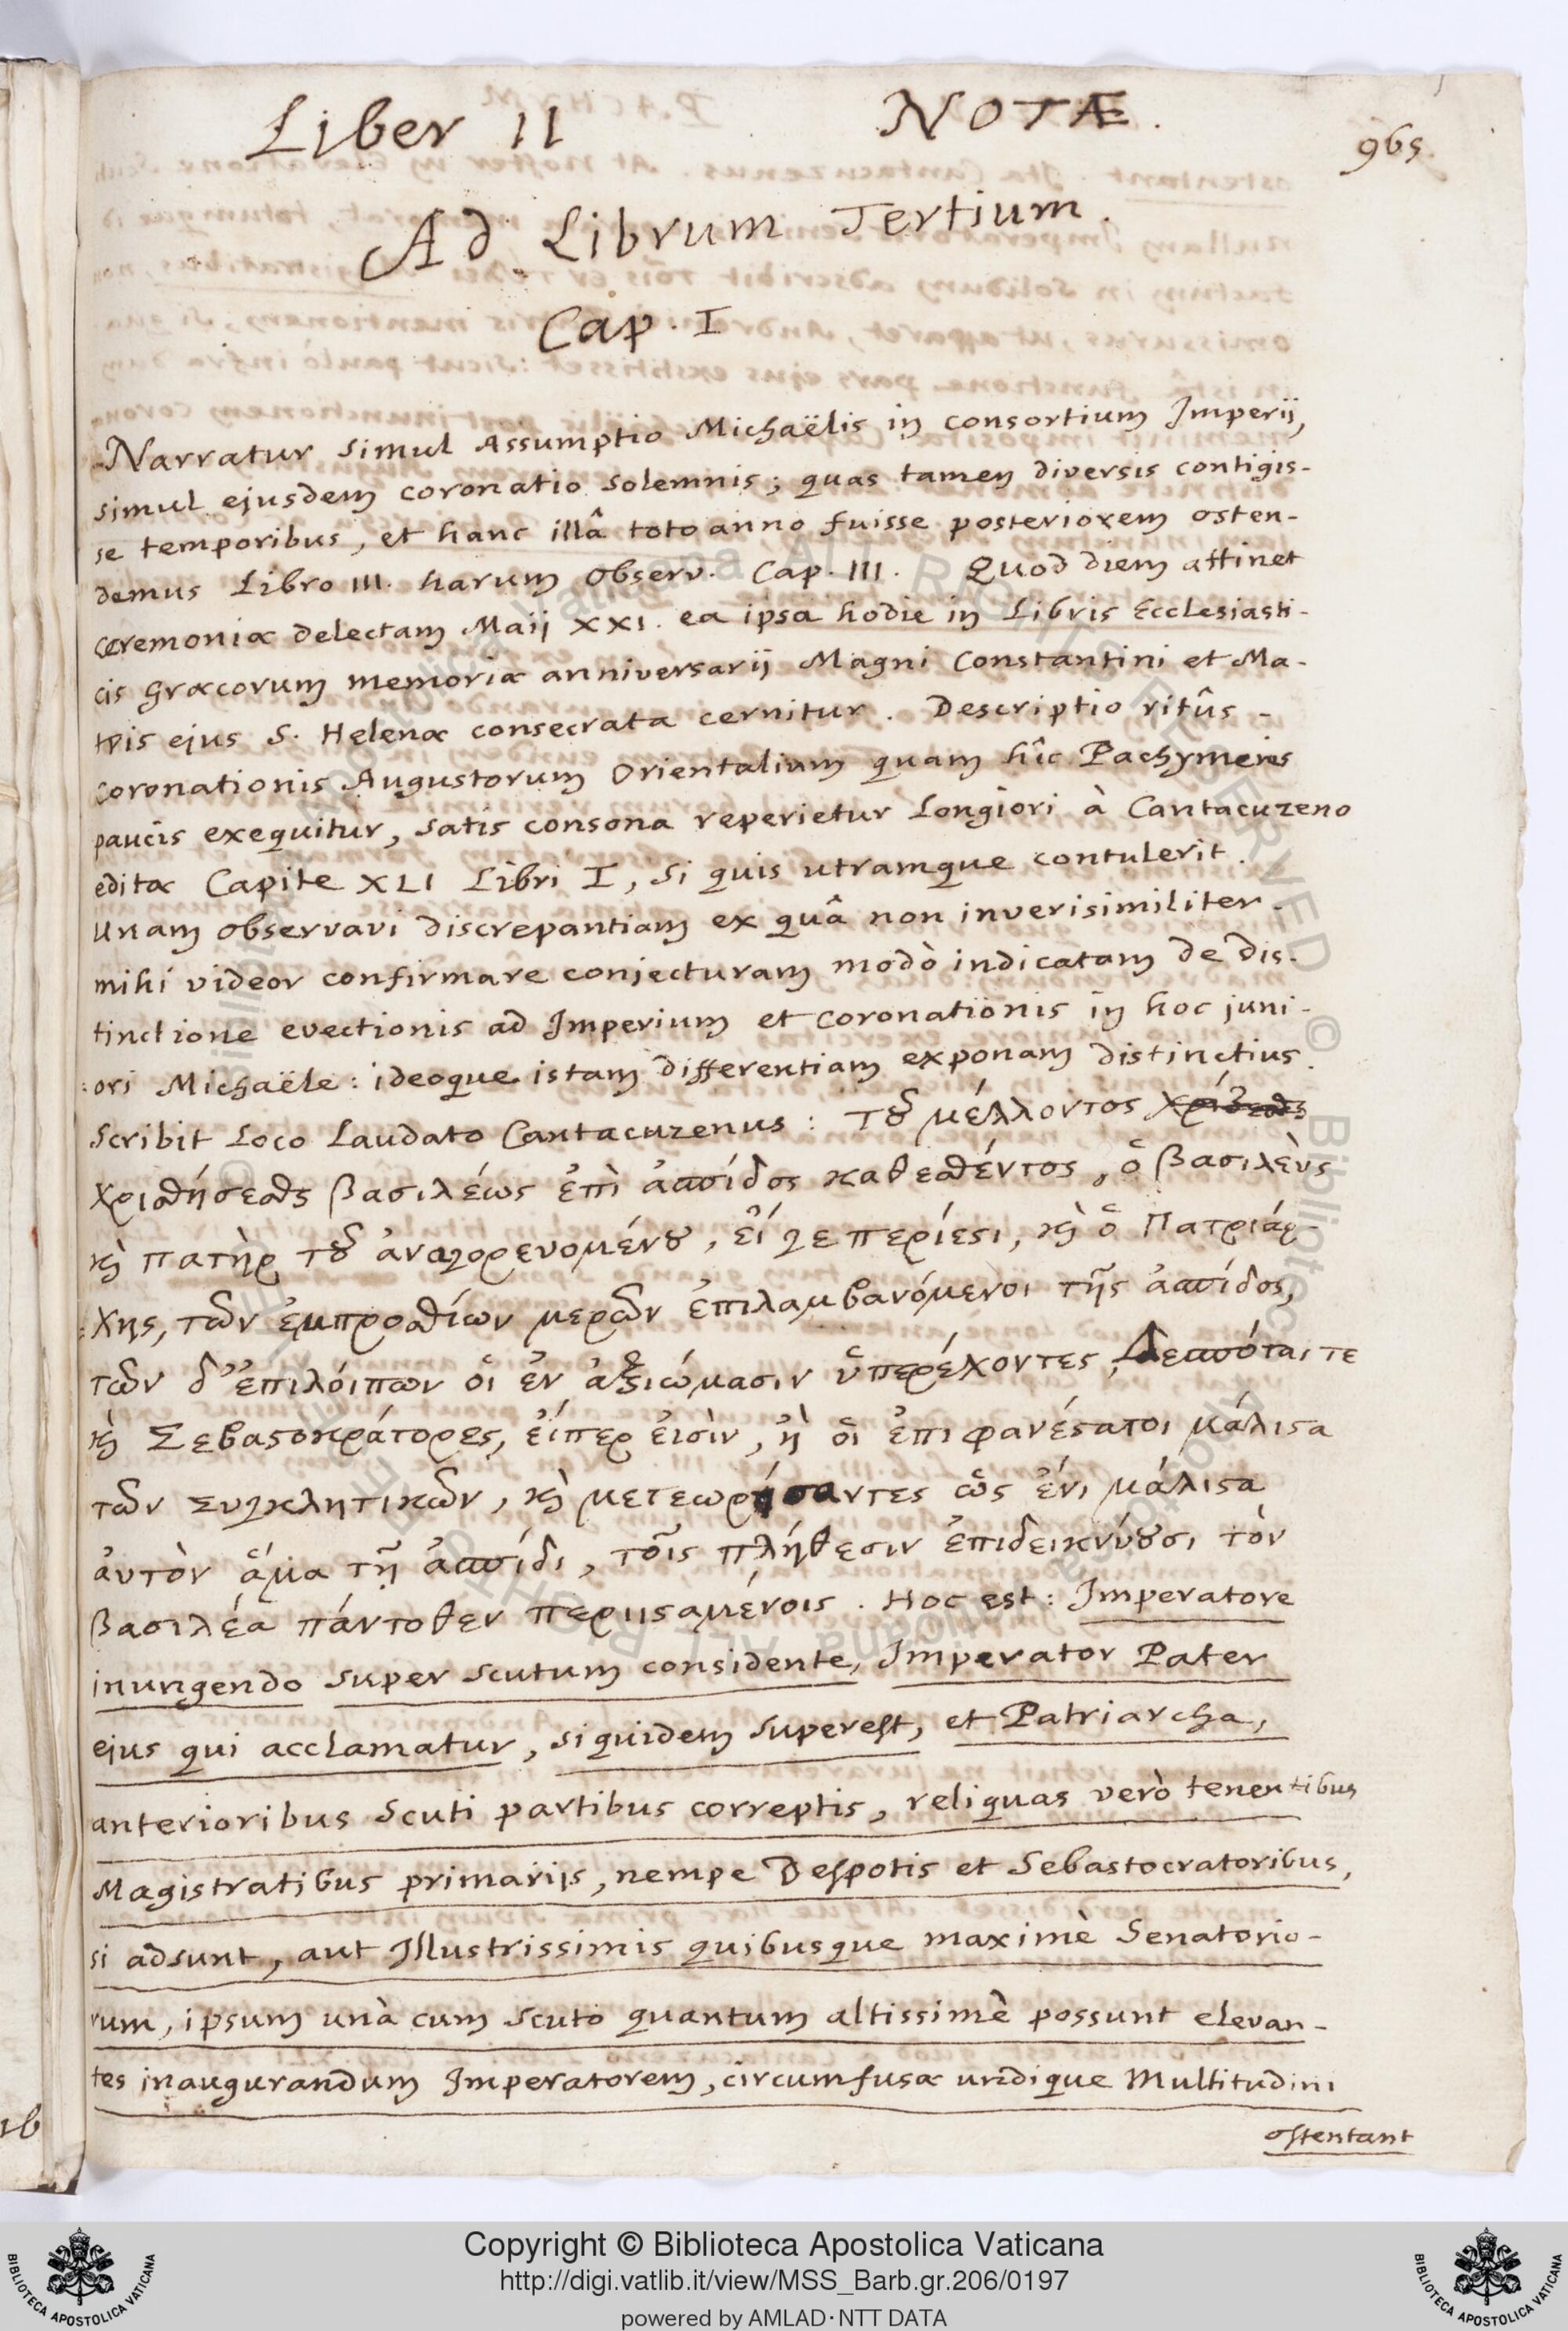 Liber II NOTÆ.
965.
Ad Librum Tertium.
Cap. I
Narratur simul Assumptio Michaëlis in consortium Imperij,
simul ejusdem coronatio solemnis; quas tamen diversis contigis-
se temporibus, et hanc illâ toto anno fuisse posteriorem osten-
demus Libro III. harum Observ. Cap. III. Quod diem attinet
ceremoniæ delectam Maij XXI. ea ipsa hodie in Libris Ecclesiasti-
cis Græcorum memoriæ anniversarij Magni Constantini et Ma-
tris ejus S. Helenæ consecrata cernitur. Descriptio ritûs -
coronationis Augustorum Orientalium quam hîc Pachymeres
paucis exequitur, satis consona reperietur Longiori à Cantacuzeno
editæ Capite XLI Libri I, si quis utramque contulerit.
Unam observavi discrepantiam ex quâ non inverisimiliter -
mihi videor confirmare conjecturam modò indicatam de dis-
tinctione evectionis ad Imperium et coronationis in hoc juni-
:ori Michaële: ideoque istam differentiam exponam distinctius.
Scribit Loco Laudato Cantacuzenus: τȣ͂ μέλλοντος
χρισθήσεσθαι βασιλέως ἐπὶ ἀσπίδος καθεσθέντος, ὁ βασιλεὺς
ϗ̀ πατὴρ τȣ͂ ἀναγορευομένȣ, εἴ γε περίεϛι, ϗ̀ ὁ Πατριάρ-
:χης, τῶν ἐμπροσθίων μερῶν ἐπιλαμβανόμενοι τῆς ἀσπίδος,
τῶν δ' ἐπιλόιπων ὁι ἐν ἀξιώμασιν ὑπερέχοντες, Δεσπόται τε
ϗ̀ Σεβαϛοκράτορες, ἐίπερ ἐισὶν, ἢ ὁι ἐπιφανέϛατοι μάλιϛα
τῶν συγκλητικῶν, ϗ̀ μετεωρήσαντες ὡς ἔνι μάλιϛα
ἀυτὸν ἅμα τῇ ἀσπίδι, τοῖς πλήθεσιν ἐπιδεικνύȣσι τὸν
βασιλέα πάντοθεν περιιϛαμένοις. Hoc est: Imperatore
inungendo super scutum considente, Imperator Pater
ejus qui acclamatur, siquidem superest, et Patriarcha,
anterioribus Scuti partibus correptis, reliquas verò tenentibus
Magistratibus primarijs, nempe Despotis et Sebastocratoribus,
si adsunt, aut Illustrissimis quibusque maximè Senatorio-
rum, ipsum unà cum scuto quantum altissimè possunt elevan-
tes inaugurandum Imperatorem, circumfusæ undique Multitudini
ostentant
Copyright © Biblioteca Apostolica Vaticana
http://digi.vatlib.it/view/MSS_Barb.gr.206/0197
powered by AMLAD·NTT DATA
BIBLIOTECA APOSTOLICA VATICANA
BIBLIOTECA APOSTOLICA VATICANA